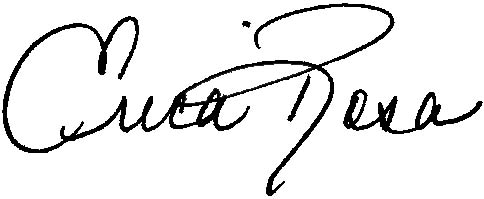 Erica Rosa